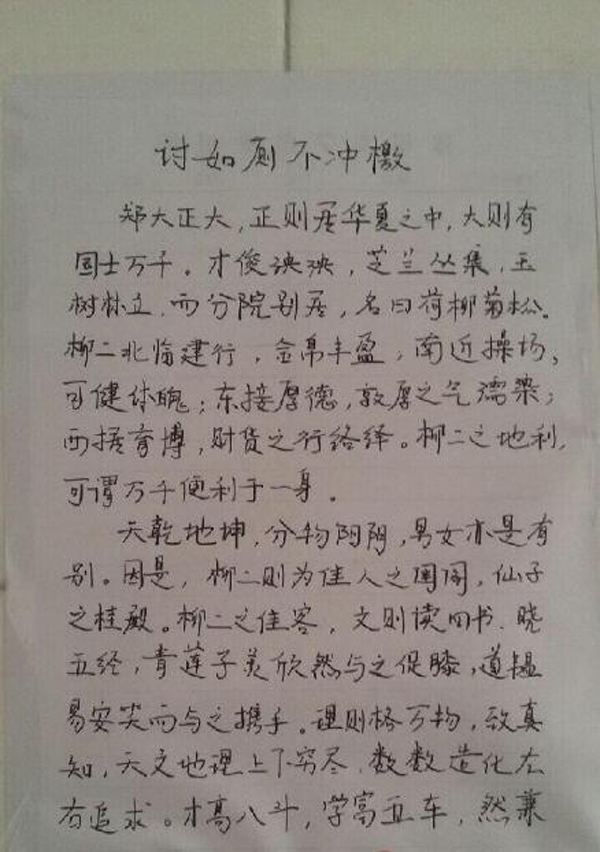 讨如厕不冲檄
郑大正大，正则居华夏之中，大则有
国士万千。才俊泱泱，芝兰丛集，玉
树林立，而分院别居，名曰荷柳菊松。
柳二北临建行，金帛丰盈，南近操场，
可健体魄；东接厚德，敦厚之气濡染；
西括育博，财货之行络绎。柳二之地利，
可谓万千便利于一身。
天乾地坤，分物阴阳，男女亦是有
别。因是，柳二则为佳人之闺阁，仙子
之桂殿。柳二之佳客，文则读四书、晓
五经，青莲子美欣然与之促膝，道韫
易安笑而与之携手。理则格万物，致真
知，天文地理上下穷尽，数数造化左
右追求。才高八斗，学富五车，然兼